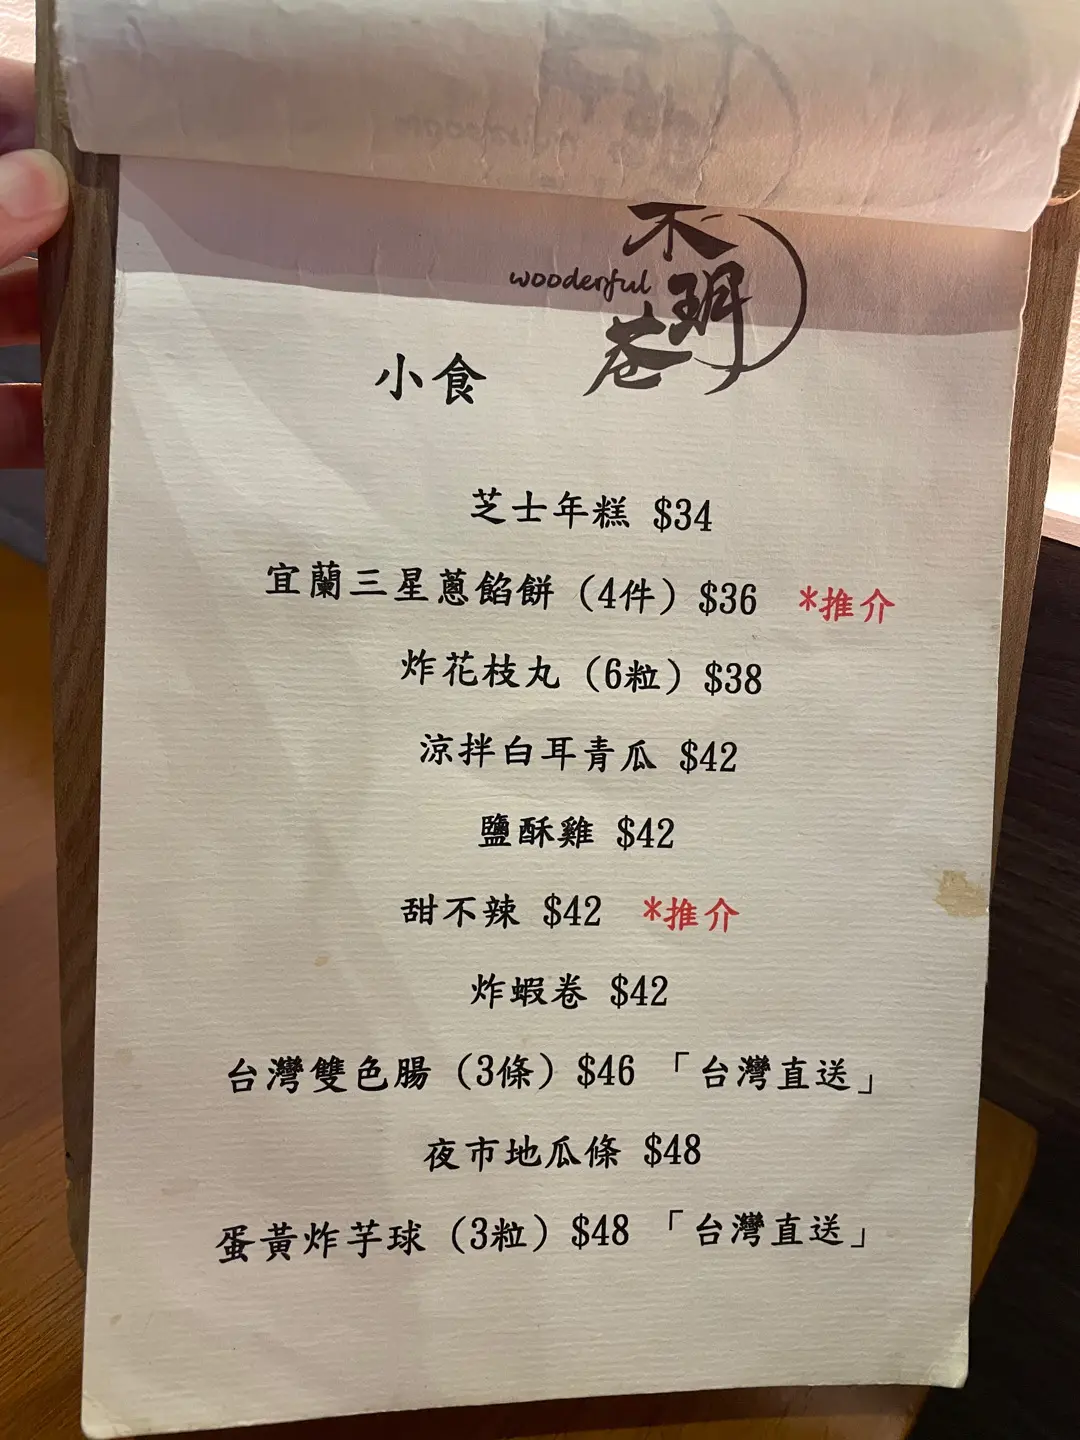 木
wooderful
玥
巷
小食
芝士年糕 $34
宜蘭三星蔥餡餅 (4件) $36 *推介
炸花枝丸 (6粒) $38
涼拌白耳青瓜 $42
鹽酥雞 $42
甜不辣 $42 *推介
炸蝦卷 $42
台灣雙色腸 (3條) $46 「台灣直送」
夜市地瓜條 $48
蛋黃炸芋球 (3粒) $48 「台灣直送」